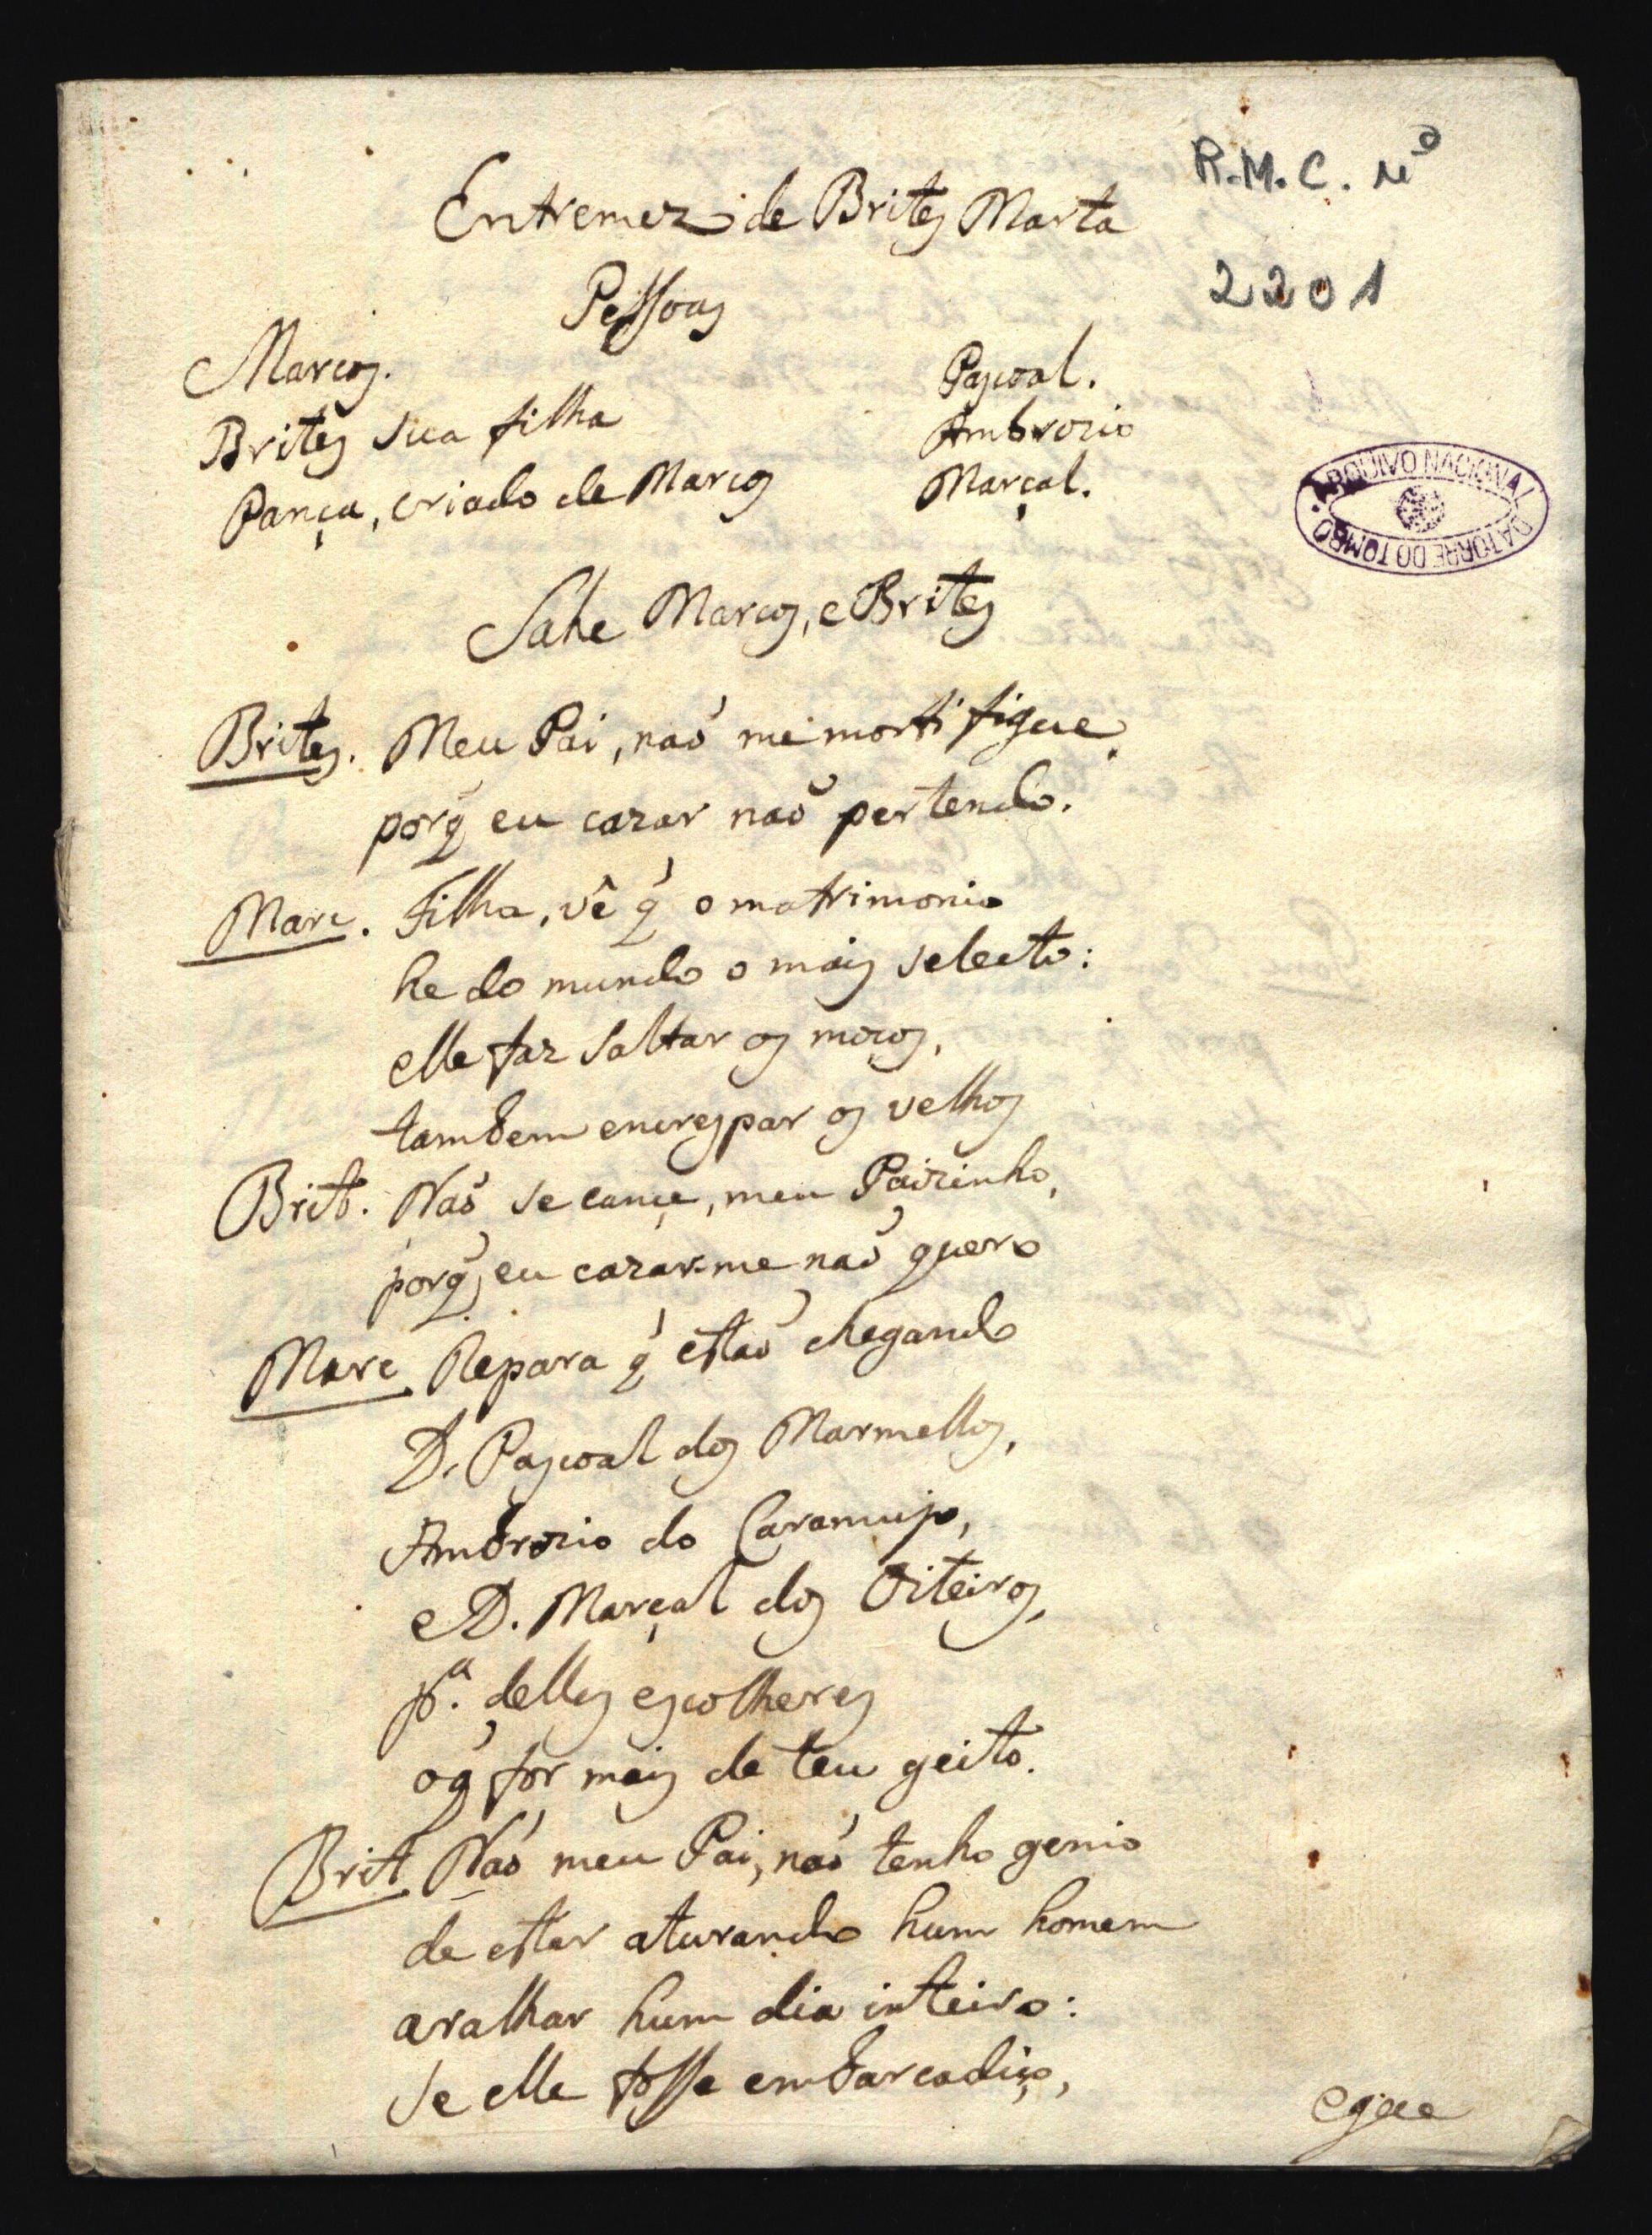 R.M.C. Nº
2201
Entremez de Brites Marta
Pessoas
Marcos.
Brites sua filha
Pança, criado de Marcos
Pascoal.
Ambrozio
Marçal.
ARQUIVO NACIONAL DA TORRE DO TOMBO
Sahe Marcos, e Brites
Brites. Meu Pai, naõ me mortifique
porq̃ eu cazar naõ pertendo.
Marc. Filha, vê q̃ o matrimonio
he do mundo o mais selecto:
elle faz saltar os moços,
tambem encrespar os velhos
Brit. Naõ se cançe, meu Paizinho,
porq̃ eu cazar-me naõ quero
Marc Repara q̃ estaõ chegando
D. Pascoal dos Marmellos,
Ambrozio do Caramujo,
e D. Marçal dos Oiteiros,
pª. delles escolheres
o q̃ for mais de teu geito.
Brit Naõ meu Pai, naõ tenho genio
de estar aturando hum homem
a ralhar hum dia inteiro:
Se elle fosse embarcadiço,
e que